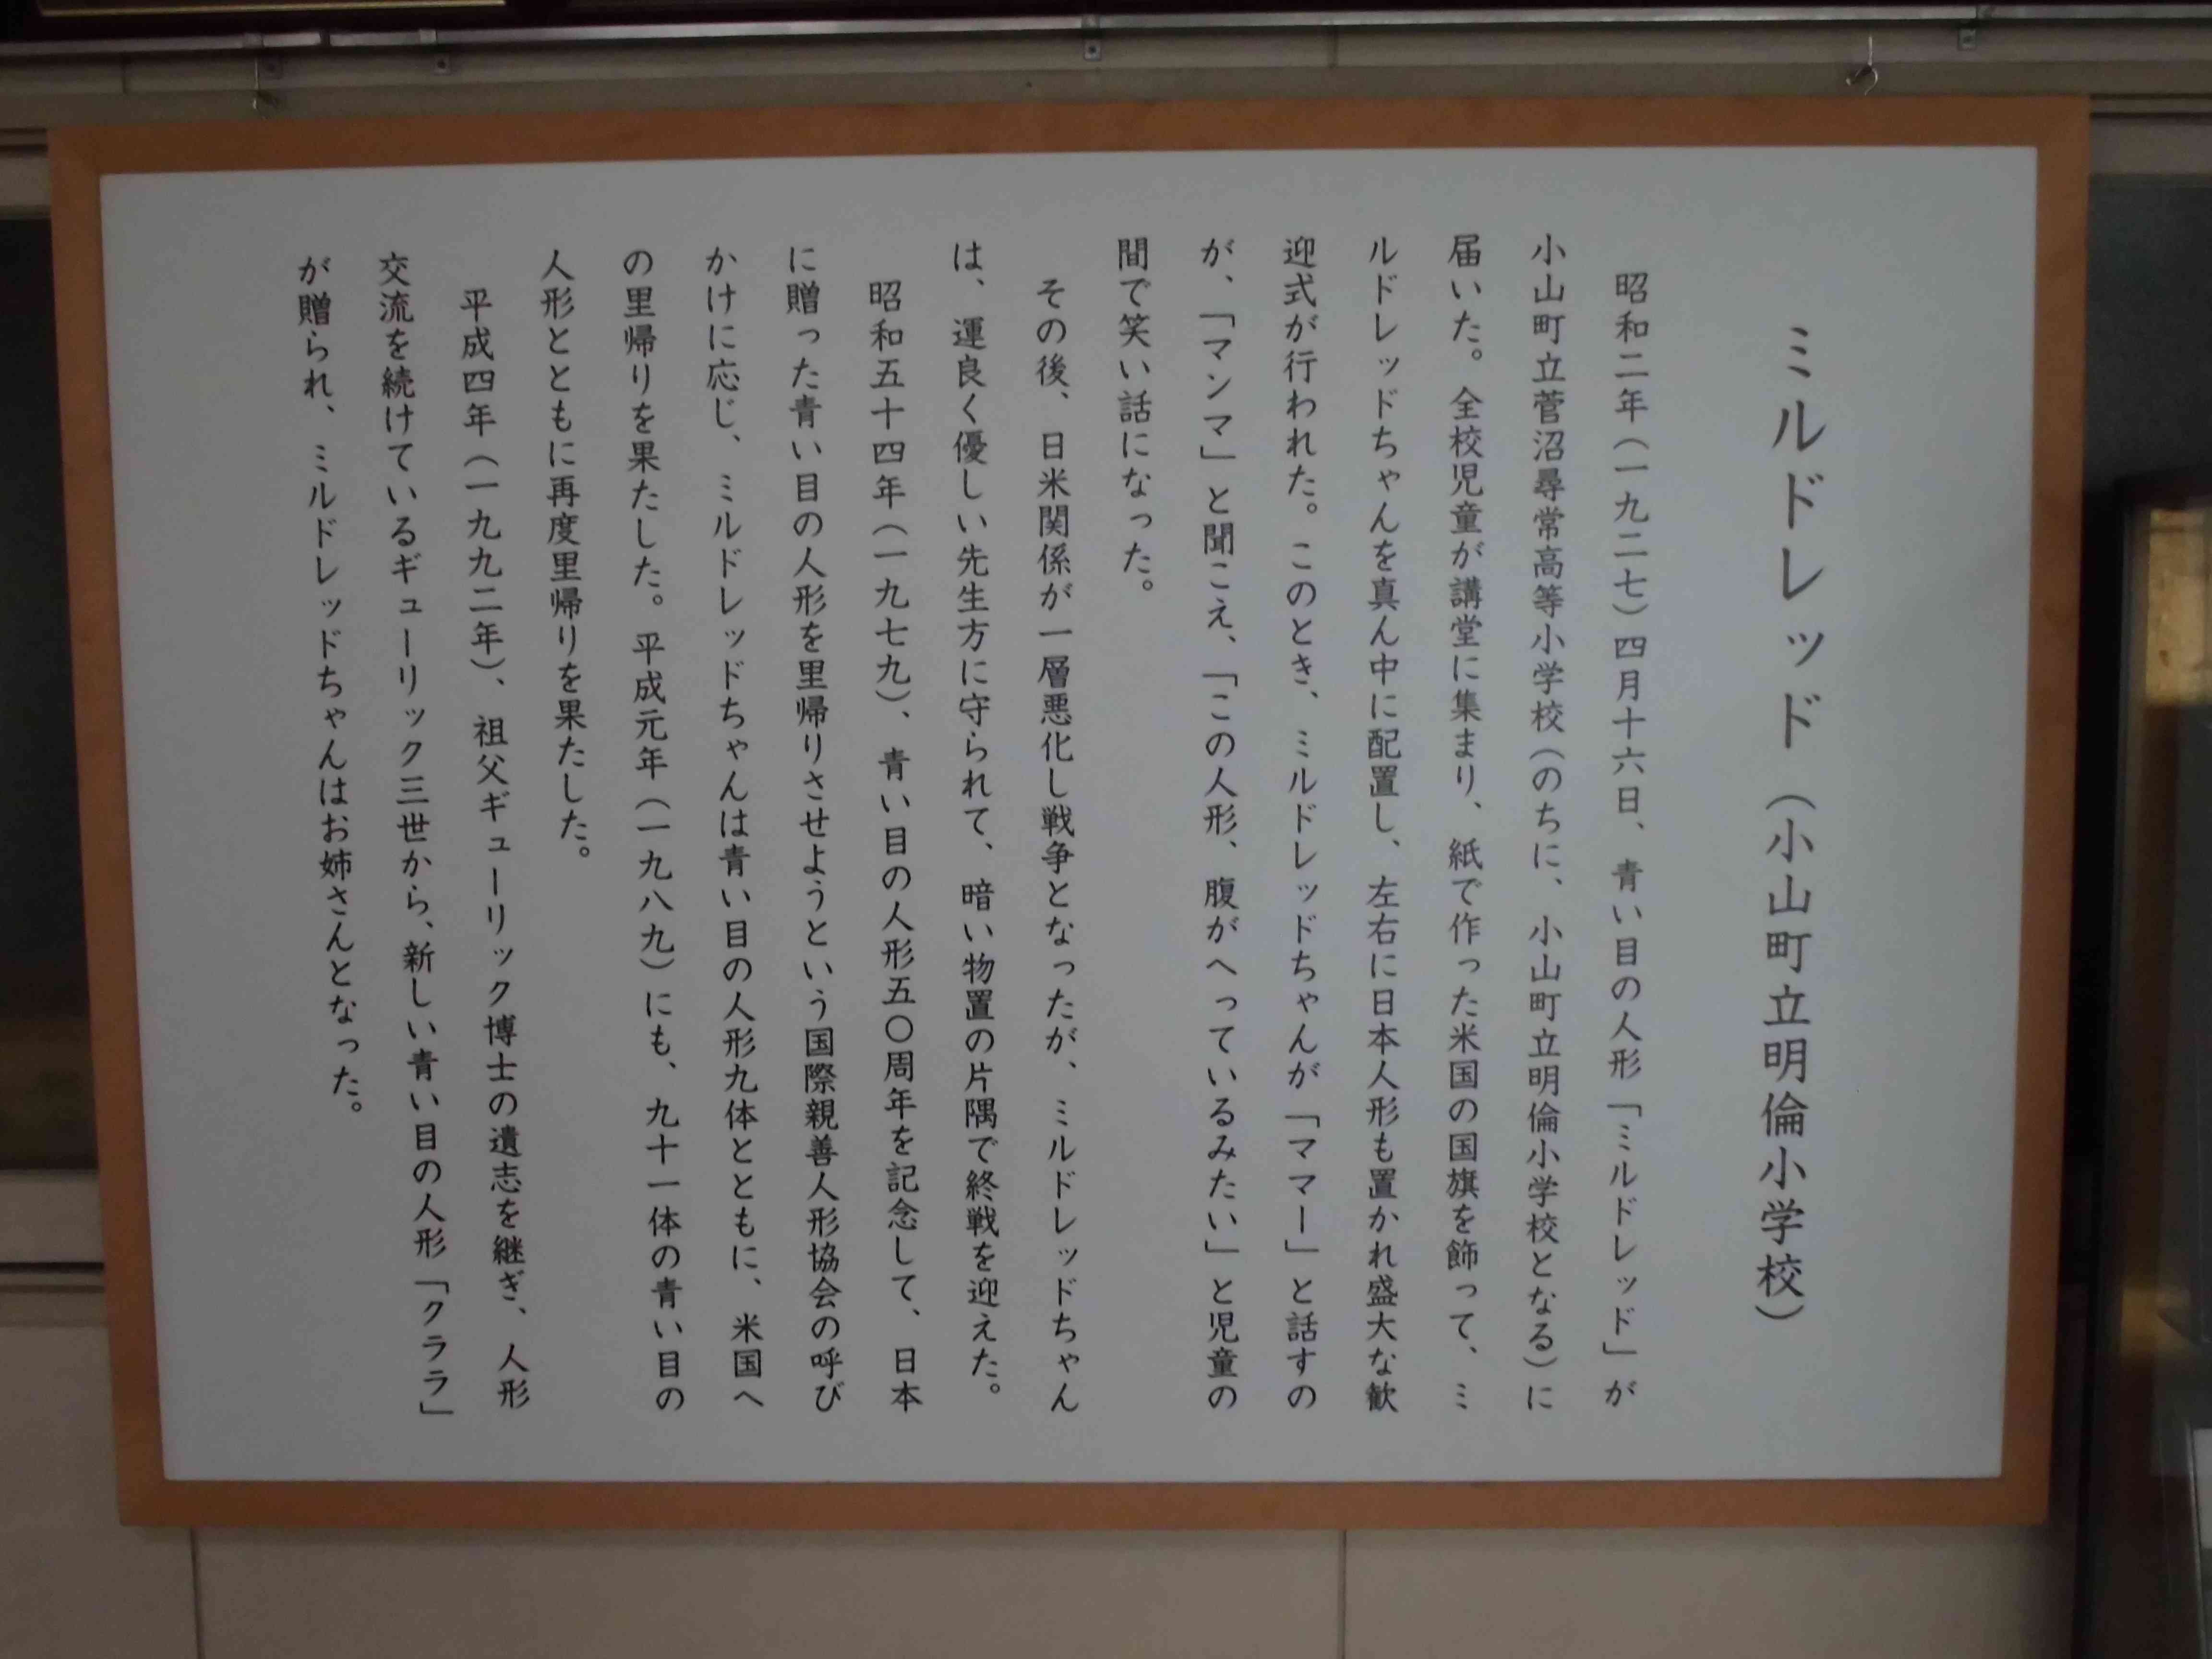 ミルドレッド（小山町立明倫小学校）
昭和二年（一九二七）四月十六日、青い目の人形「ミルドレッド」が
小山町立菅沼尋常高等小学校（のちに、小山町立明倫小学校となる）に
届いた。全校児童が講堂に集まり、紙で作った米国の国旗を飾って、ミ
ルドレッドちゃんを真ん中に配置し、左右に日本人形も置かれ盛大な歓
迎式が行われた。このとき、ミルドレッドちゃんが「ママー」と話すの
が、「マンマ」と聞こえ、「この人形、腹がへっているみたい」と児童の
間で笑い話になった。
その後、日米関係が一層悪化し戦争となったが、ミルドレッドちゃん
は、運良く優しい先生方に守られて、暗い物置の片隅で終戦を迎えた。
昭和五十四年（一九七九）、青い目の人形五〇周年を記念して、日本
に贈った青い目の人形を里帰りさせようという国際親善人形協会の呼び
かけに応じ、ミルドレッドちゃんは青い目の人形九体とともに、米国へ
の里帰りを果たした。平成元年（一九八九）にも、九十一体の青い目の
人形とともに再度里帰りを果たした。
平成四年（一九九二年）、祖父ギューリック博士の遺志を継ぎ、人形
交流を続けているギューリック三世から、新しい青い目の人形「クララ」
が贈られ、ミルドレッドちゃんはお姉さんとなった。